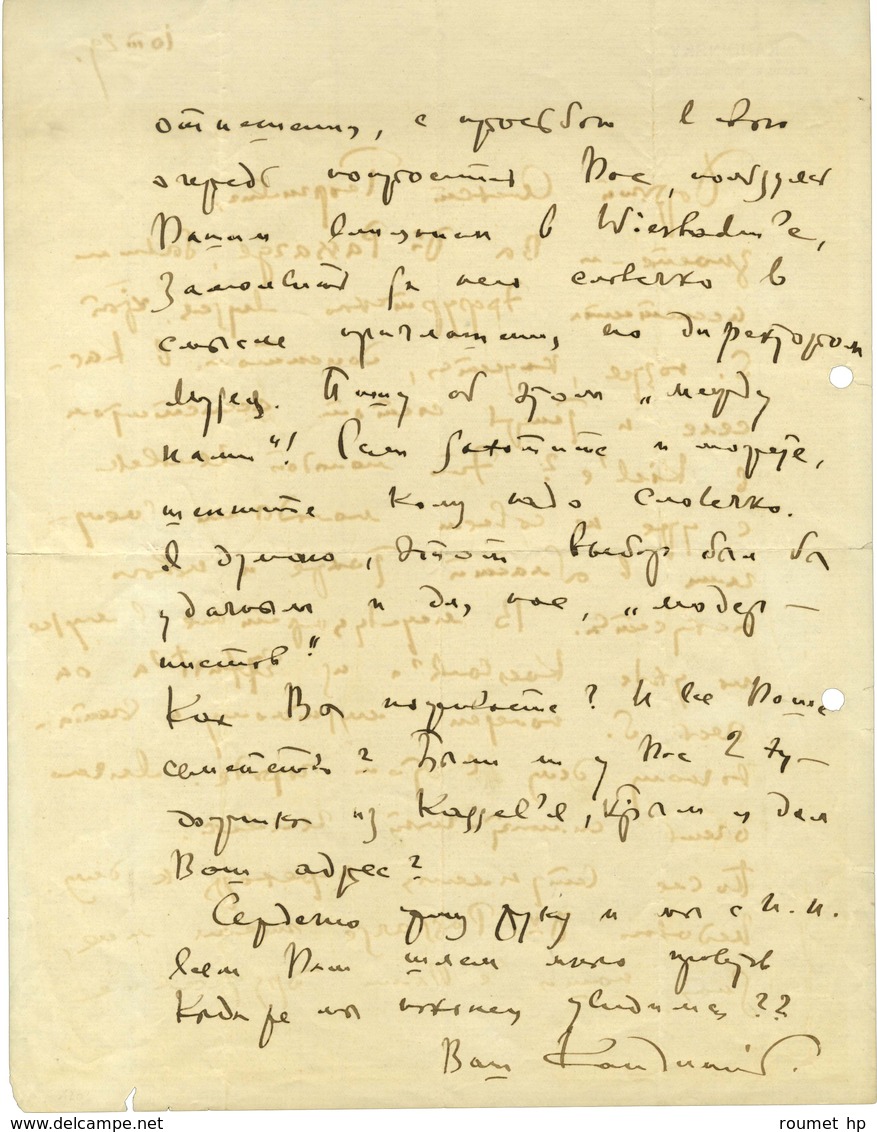 отношению, с просьбою в свою
очередь попросить Вас, пользуясь
Вашим влиянием в Wiesbaden'е,
замолвить за него словечко в
смысле приглашения его директором
музея. Пишу об этом „между
нами“! Если захотите и можете,
шепните кому надо словечко.
Я думаю, этот выбор был бы
удачным и для нас, „модер-
нистов“
Как Вы поживаете? И все Ваше
семейство? Были ли у Вас 2 ху-
дожника из Kassel'я, кѣрым я дал
Ваш адрес?
Сердечно жму руку и мы с Н. Н.
всем Вам шлем много приветов
Когда же мы наконец увидимся??
Ваш Кандинский.
10 III 29.
www.delcampe.net
roumet hp